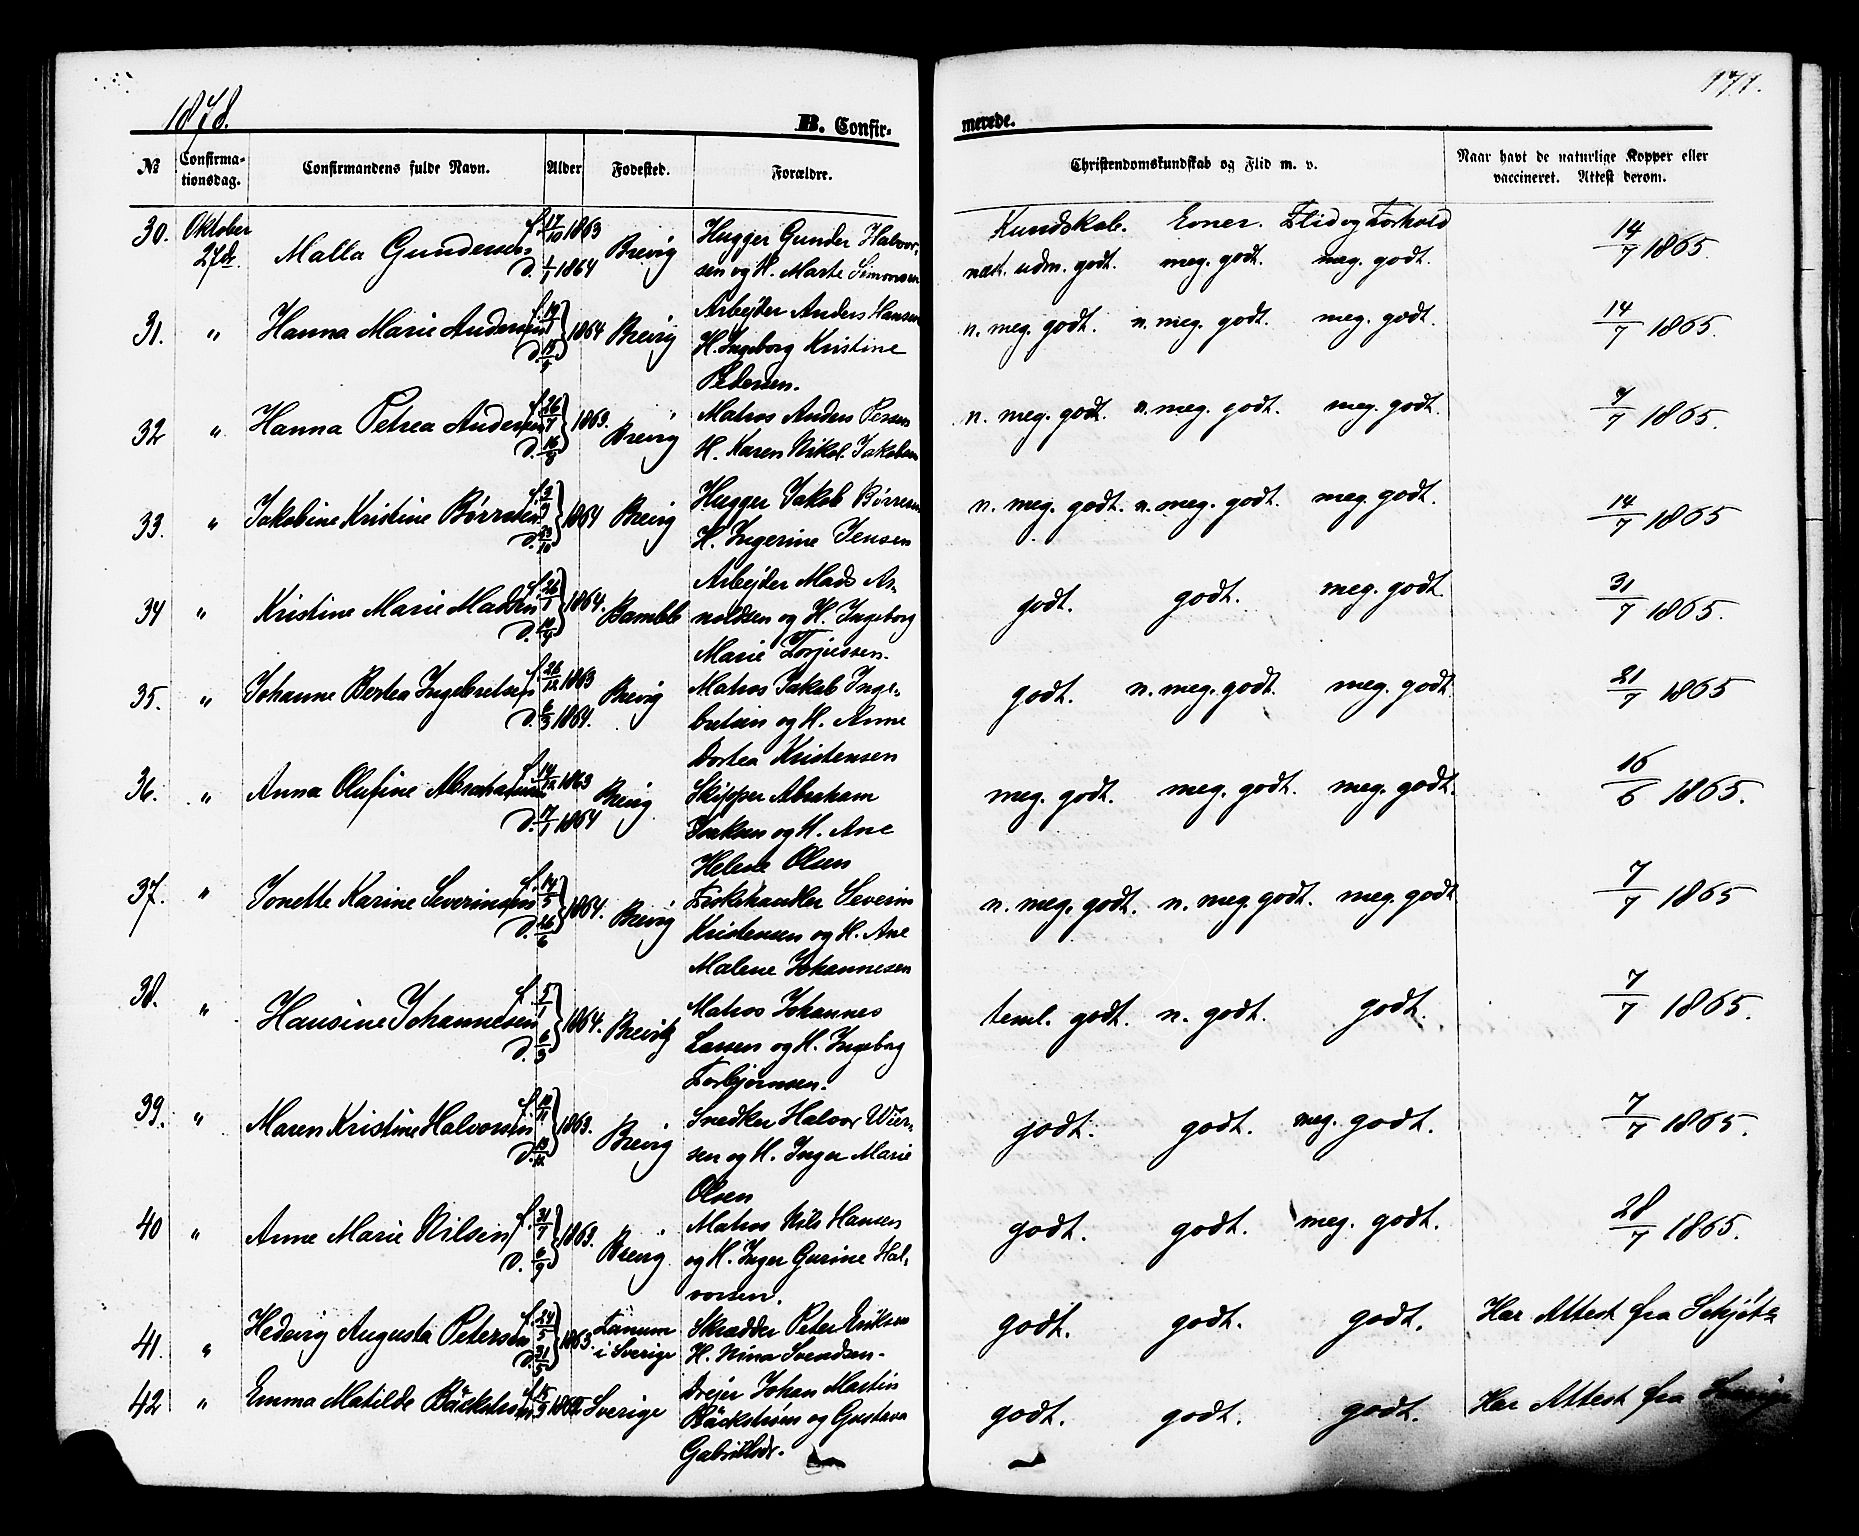 1878.
171.
B. Confir-
merede.
No Confirmationsdag. Confirmandens fulde Navn. Alder Fødested. Forældre. Christendomskundskab og Flid m. v. Naar havt de naturlige Kopper eller vaccineret. Attest derom.
Kundskab. Evner. Flid og Forhold
30. Oktober 27de. Malla Gundersen f. 17/10 1863 d. 1/1 1864 Brevig Hugger Gunder Halvorsen og H. Marte Simonsen næst. udm. godt. meg. godt. meg. godt. 14/7 1865
31. " Hanna Marie Andersen 1864 Brevig Arbejder Anders Hansen H. Ingeborg Kristine Pedersen. n. meg. godt. n. meg. godt. meg. godt. 14/7 1865.
32 " Hanna Petrea Andersen 1863. Brevig Matros Anders H. Karen Nikol. Jakobsen n. meg. godt. n. meg. godt. meg. godt. 7/7 1865.
33. " Jakobine Kristine Børresen 1864 Brevig Hugger Jakob Børresen H. Ingerine Jensen n. meg. godt. n. meg. godt. meg. godt. 14/7 1865
34 " Kristine Marie Madsen 1864. Bamble Arbejder Mads Arnoldsen og H. Ingeborg Marie godt. godt. meg. godt. 31/7 1865.
35. " Johanne Bertea Ingebretsen f. 28/12 1863 d. 6/3 1864. Brevig Matros Jakob Ingebretsen og H. Anne Dortea Kristensen godt. n. meg. godt. meg. godt 21/7 1865
36. " Anna Olufine Abrahamsen f. 14/12 1863 d. 17/1 1864 Brevig Skipper Abraham Isaksen og H. Ane Helene Olsen meg. godt. meg. godt. meg. godt. 16/6 1865.
37. " Jonette Karine Severinsen f. 14/5 d. 16/6 1864. Brevig Fiskehandler Severin Kristensen og H. Ane Malene Johannesen n. meg. godt. n. meg. godt. meg. godt 7/7 1865
38. " Hansine Johannesen f. 5/1 d. 6/3 1864. Brevik Matros Johannes Larsen og H. Ingeborg Torbjørnsen. teml. godt. n. godt. godt. 7/7 1865.
39. " Maren Kristine Halvorsen 1863. Brevig Snedker Halvor og H. Inger Marie Olsen godt. godt. meg. godt. 7/7 1865.
40 " Anne Marie Nilsen f. 31/7 d. 6/9 1863. Brevig Matros Nils Hansen og H. Inger Gurine Halvorsen. godt. godt. meg. godt. 28/7 1865.
41. " Hedevig Augusta Petersen f. 24/5 d. 31/5 1863. Tanum i Sverige Skrædder Peter Erikson H. Nina Svendsen. godt. godt. godt. Har Attest fra
42 " Emma Matilde Bäckstrøm Sverige Drejer Johan Martin Bäckstrøm og Gustava godt. godt. godt. Har Attest fra Sverige